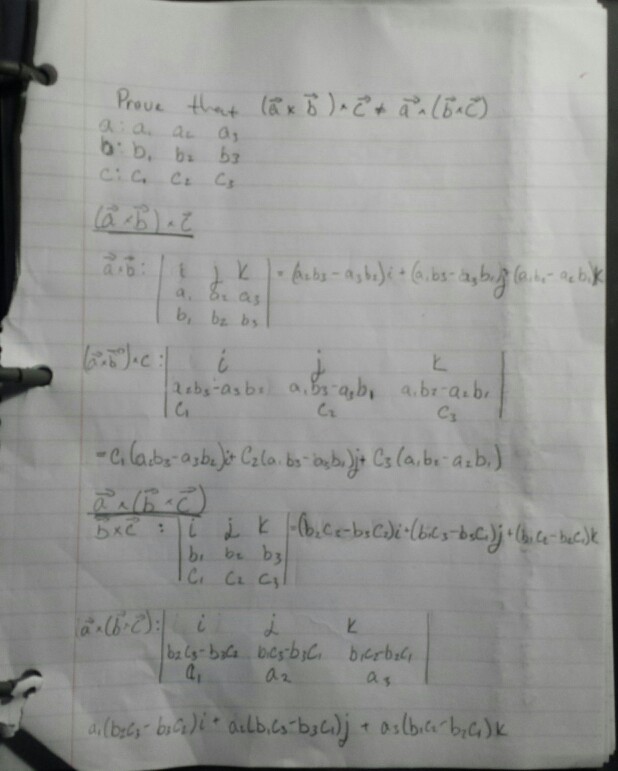 Prove that (a⃗ × b⃗) × c⃗ ≠ a⃗ × (b⃗ × c⃗)
a: a₁ a₂ a₃
b: b₁ b₂ b₃
c: c₁ c₂ c₃
(a⃗ × b⃗) × c⃗
a⃗ × b⃗ : | i j k | = (a₂b₃ - a₃b₂)i + (a₁b₃ - a₃b₁)j (a₁b₂ - a₂b₁)k
a₁ a₂ a₃
b₁ b₂ b₃
(a⃗ × b⃗) × c : | i j k |
a₂b₃ - a₃b₂ a₁b₃ - a₃b₁ a₁b₂ - a₂b₁
c₁ c₂ c₃
= c₁(a₂b₃ - a₃b₂)i + c₂(a₁b₃ - a₃b₁)j + c₃(a₁b₂ - a₂b₁)
a⃗ × (b⃗ × c⃗)
b⃗ × c⃗ : | i j k | = (b₂c₂ - b₃c₂)i + (b₁c₃ - b₃c₁)j + (b₁c₂ - b₂c₁)k
b₁ b₂ b₃
c₁ c₂ c₃
a⃗ × (b⃗ × c⃗) : | i j k |
b₂c₃ - b₃c₂ b₁c₃ - b₃c₁ b₁c₂ - b₂c₁
a₁ a₂ a₃
a₁(b₂c₃ - b₃c₂)i + a₂(b₁c₃ - b₃c₁)j + a₃(b₁c₂ - b₂c₁)k